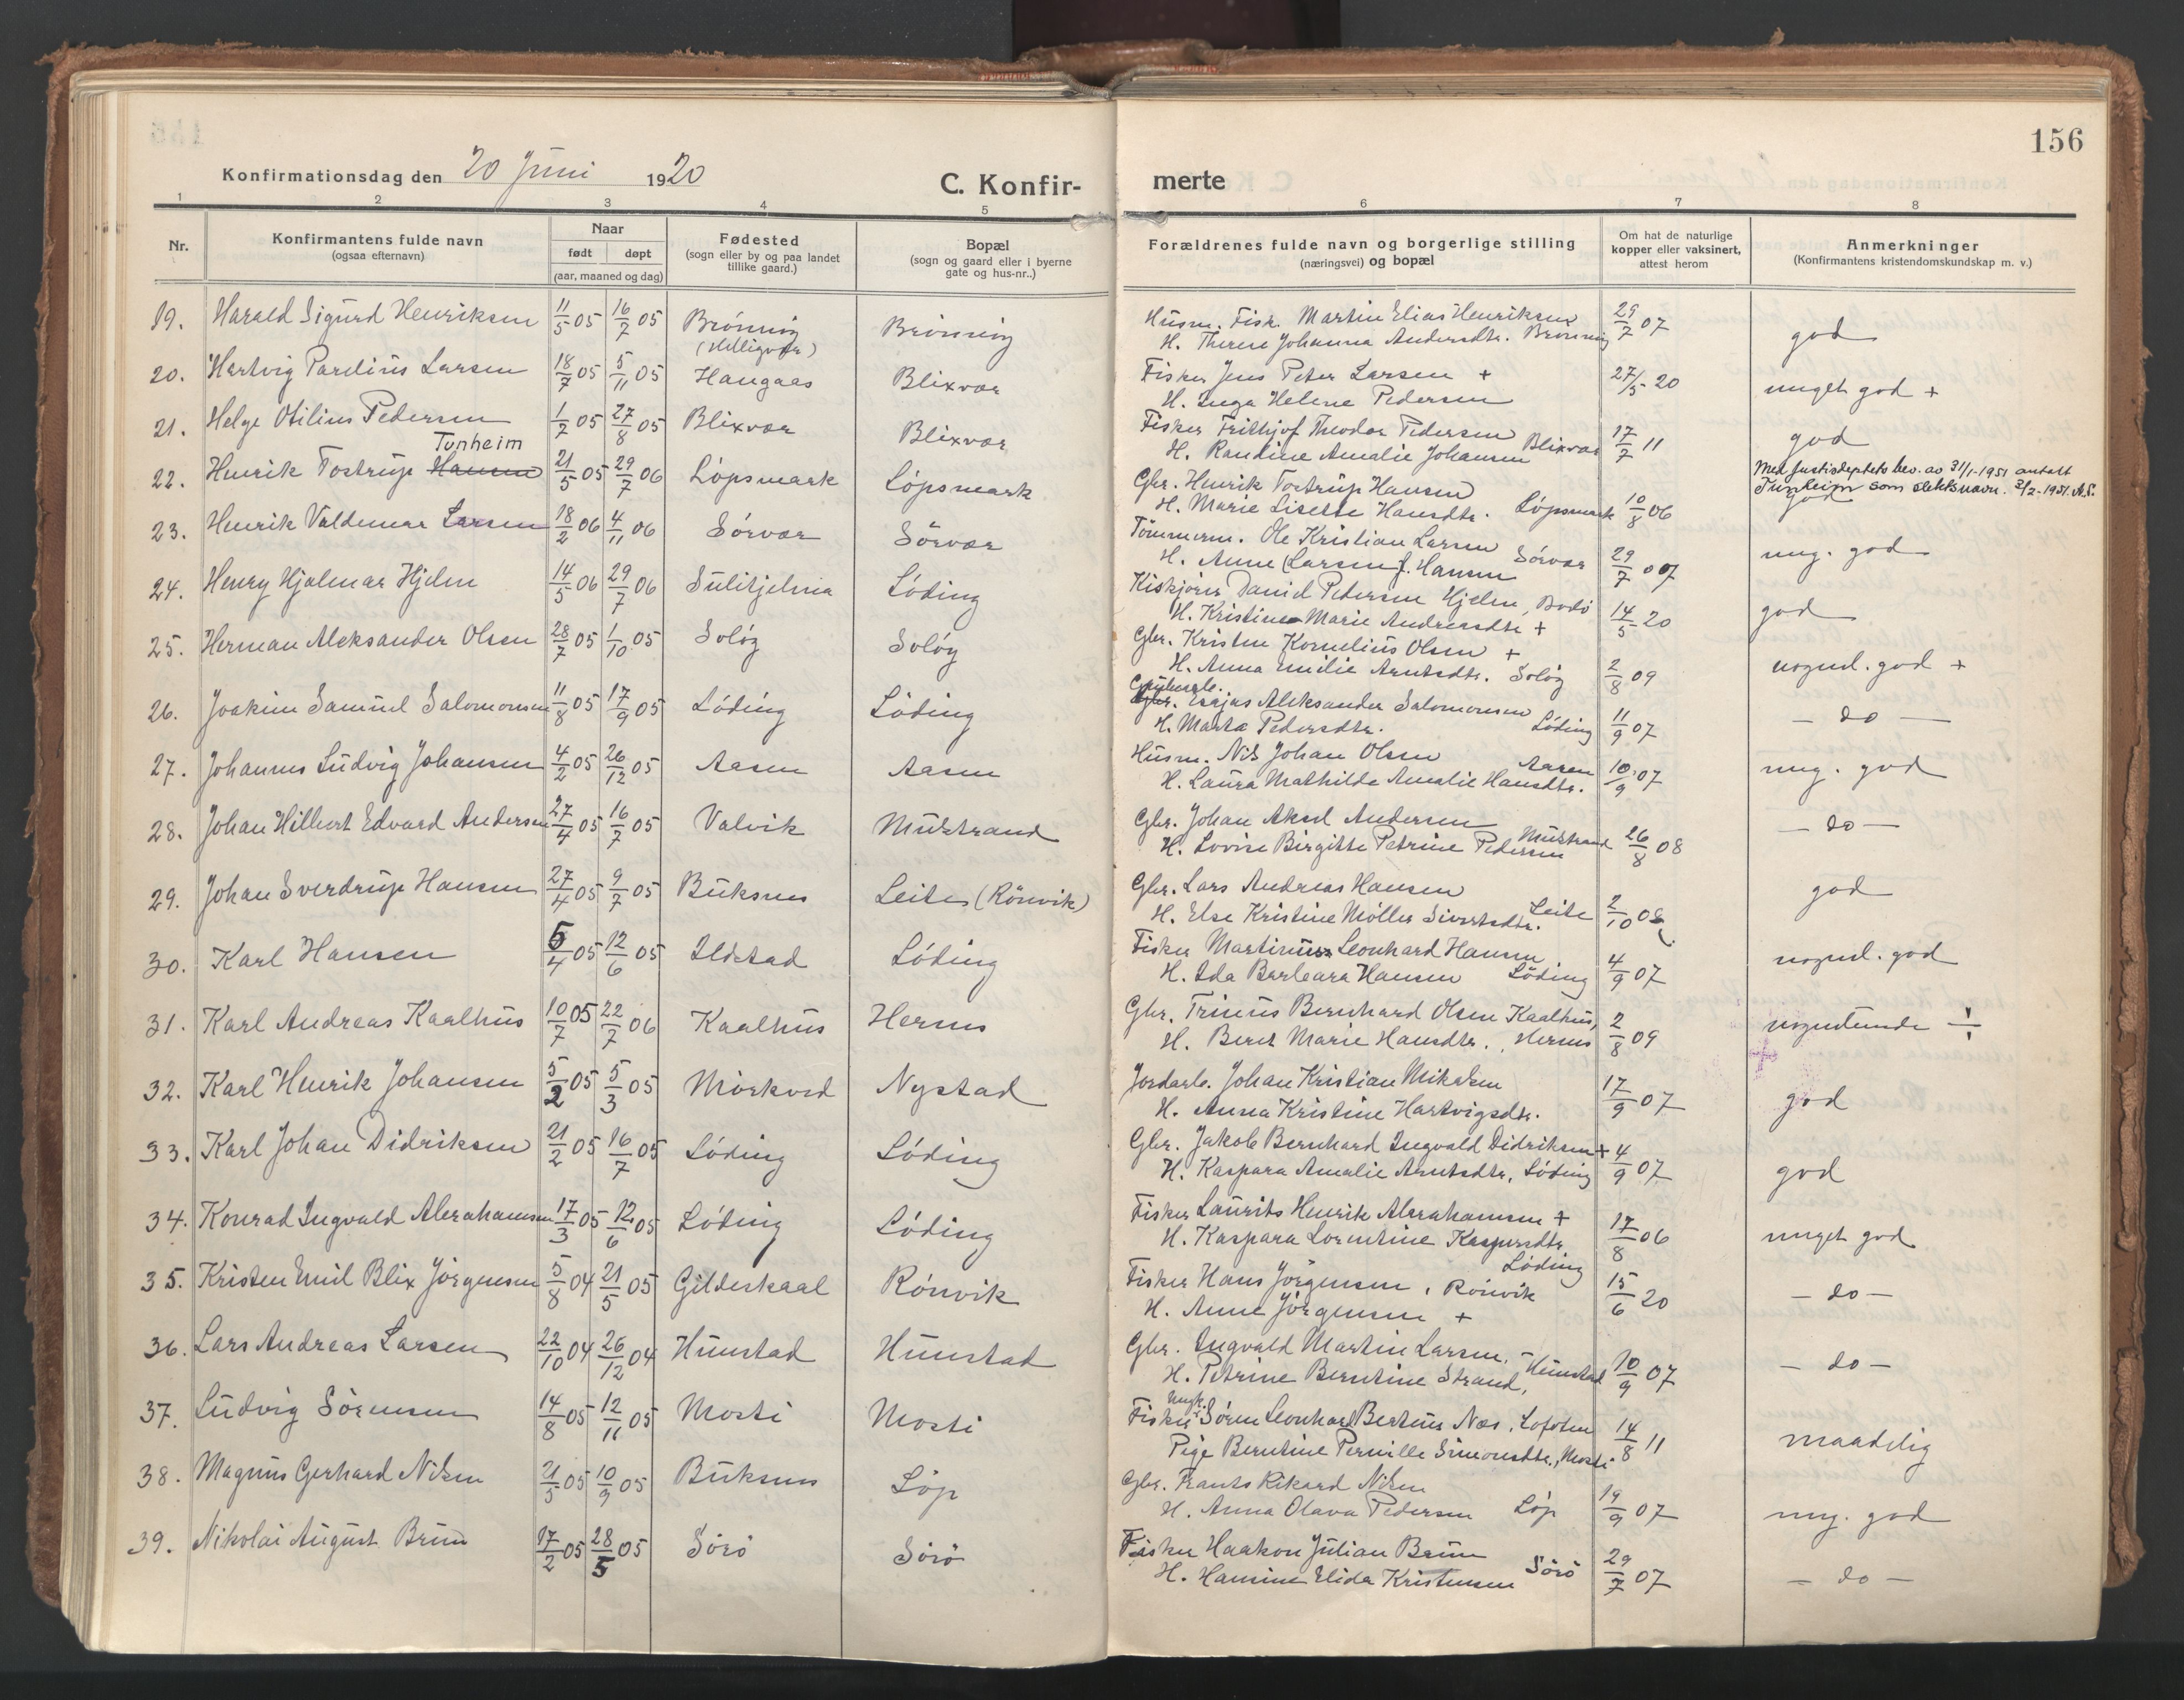 156
Konfirmationsdag den 20 Juni 1920
C. Konfirmerte
1 2 3 4 5 6 7 8
Nr. | Konfirmantens fulde navn (ogsaa efternavn) | Naar født døpt (aar, maaned og dag) | Fødested (sogn eller by og paa landet tillike gaard.) | Bopæl (sogn og gaard eller i byerne gate og hus-nr..) | Forældrenes fulde navn og borgerlige stilling (næringsvei) og bopæl | Om hat de naturlige kopper eller vaksinert, attest herom | Anmerkninger (Konfirmantens kristendomskundskap m. v.)
19. Harald Sigurd Henriksen 11/5 05 16/7 05 Brönnöy (Helligvær) Brönnöy Husm. Fisk. Martin Elias Henriksen
H. Therese Johanna Andersdtr. Brönnöy 29/7 07 god
20. Hartvig Pareliús Larsen 18/7 05 5/11 05 Haugaas Blixvær Fisker Jens Peter Larsen +
H. Inga Helene Pedersen 27/5 20 meget god +
21. Helge Otilius Pedersen 1/7 05 27/8 05 Blixvær Blixvær Fisker Frithjof Theodor Pedersen
H. Randine Amalie Johansen Blixvær 17/7 11 god
22. Henrik Tostrup Hansen Tunheim 21/5 05 29/7 06 Löpsmark Löpsmark Gbr. Henrik Tostrup Hansen
H. Marie Lisette Hansdtr. Löpsmark 10/8 06 Med Justisdeptets bev. av 31/1-1951 antatt
Tunheim som slektsnavn. 2/2-1951. A.S.
god
23. Henrik Valdemar Larsen 18/2 06 4/11 06 Sörvær Sörvær Tömmerm. Ole Kristian Larsen
H. Anne (Larsen) f. Hansen Sörvær 29/7 07 meg. god
24. Henry Hjalmar Hjelm 14/5 06 29/7 06 Sulitjelma Löding Kiskjörer Daniel Pedersen Hjelm, Bodö
H. Kristine Marie Andreasdtr + 14/5 20 god
25. Herman Aleksander Olsen 28/7 05 1/10 05 Solöy Solöy Gbr. Kristen Kornelius Olsen +
H. Anna Emilie Arntsdtr. Solöy 2/8 09 nogenl. god +
26. Joakim Samuel Salomonsen 11/8 05 17/9 05 Löding Löding Grubearb. Esajas Aleksander Salomonsen
H. Marta Pedersdtr. Löding 11/9 07 — do —
27. Johannes Ludvig Johansen 4/2 05 26/12 05 Aasen Aasen Husm. Nils Johan Olsen Aasen
H. Laura Mathilde Amalie Hansdtr. 10/9 07 meg. god
28. Johan Hilbert Edvard Andersen 27/4 05 16/7 05 Valvik Mulstrand Gbr. Johan Aksel Andersen
H. Lovise Birgitte Petrine Pedersen Mulstrand 26/8 08 — do —
29. Johan Sverdrup Hansen 27/4 05 9/7 05 Buksnes Leite (Rönvik) Gbr. Lars Andreas Hansen
H. Else Kristine Möller Sivertsdtr. Leite 2/10 08 god
30. Karl Hansen 5/4 05 12/6 05 Ildstad Löding Fisker Martinus Leonhard Hansen
H. Ida Barbara Hansen Löding 4/9 07 nogenl. god
31. Karl Andreas Kaalhus 10/7 05 22/7 06 Kaalhus Hernes Gbr. Trinius Bernhard Olsen Kaalhus,
H. Beret Marie Hansdtr., Hernes 2/8 09 nogenlunde ÷
32. Karl Henrik Johansen 5/2 05 5/3 05 Mörkved Nystad Jordarb. Johan Kristian Mikalsen
H. Anna Kristine Hartvigsdtr. 17/9 07 god
33. Karl Johan Didriksen 21/2 05 16/7 05 Löding Löding Gbr. Jakob Bernhard Ingvald Didriksen +
H. Kaspara Amalie Arntsdtr, Löding 4/9 07 god
34. Konrad Ingvald Abrahamsen 17/3 05 12/6 05 Löding Löding Fisker Laurits Henrik Abrahamsen +
H. Kaspara Lorentine Kaspersdtr Löding 17/8 06 meget god
35. Kristen Emil Blix Jörgensen 5/8 04 21/5 05 Gildeskaal Rönvik Fisker Hans Jörgensen, Rönvik
H. Anne Jörgensen + 15/6 20 — do —
36. Lars Andreas Larsen 22/10 04 26/12 04 Hunstad Hunstad Gbr. Ingvald Martin Larsen,
H. Petrine Berntine Strand, Hunstad 10/9 07 — do —
37. Ludvig Sörensen 14/8 05 12/11 05 Mosti Mosti Ungk. Fisker Sören Leonhard Berteus Næs, Lofoten
Pige Berntine Pernille Simonsdtr., Mosti 14/8 11 maadelig
38. Magnus Gerhard Nilsen 21/5 05 10/9 05 Buksnes Löp Gbr. Frants Rikard Nilsen
H. Anna Olava Pedersen Löp 19/9 07 meg. god
39. Nikolai August Brun 17/2 05 28/5 05 Sörö Sörö Fisker Haakon Julian Brun
H. Hansine Elida Kristensen Sörö 29/7 07 — do —